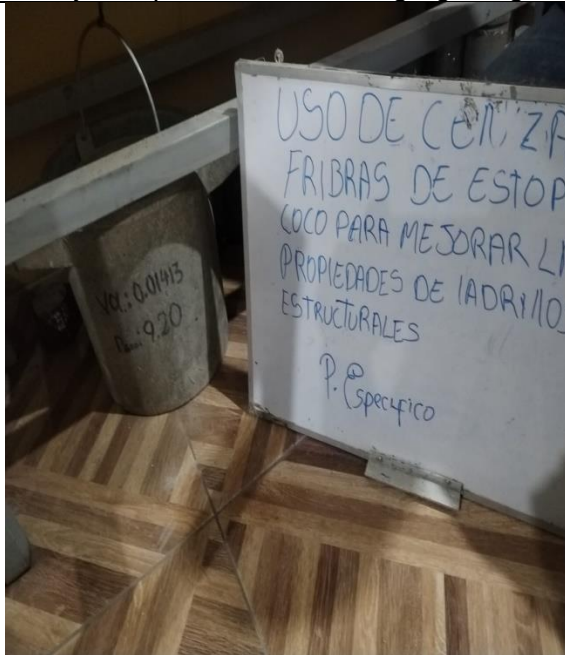 VOL: 0.01413
9.20
USO DE CENIZA
FRIBRAS DE ESTOP
COCO PARA MEJORAR L
PROPIEDADES DE lADRIllO
ESTRUCTURALES
P. Especifico